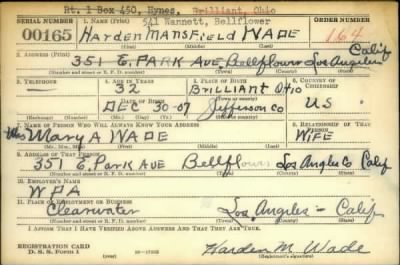 Rt. 1 Box 450, Hynes, Brilliant, Ohio
SERIAL NUMBER 1. NAME (Print) 541 Wannett, Bellflower ORDER NUMBER
00165 HARDEN MANSFIELD WADE 164
(First) (Middle) (Last)
2. ADDRESS (Print) Calif
351 E. PARK AVE Bellflower Los Angeles
(Number and street or R. F. D. number) (Town) (County) (State)
3. TELEPHONE 4. AGE IN YEARS 5. PLACE OF BIRTH 6. COUNTRY OF CITIZENSHIP
32 BRILLIANT Ohio
DATE OF BIRTH (Town or county)
DEC 30-07 Jefferson Co US
(Exchange) (Number) (Mo.) (Day) (Yr.) (State or country)
7. NAME OF PERSON WHO WILL ALWAYS KNOW YOUR ADDRESS 8. RELATIONSHIP OF THAT PERSON
Mrs MARY A WADE WIFE
(Mr., Mrs., Miss) (First) (Middle) (Last)
9. ADDRESS OF THAT PERSON
351 E. PARK AVE Bellflower Los Angles Co Calif
(Number and street or R. F. D. number) (Town) (County) (State)
10. EMPLOYER'S NAME
W.P.A
11. PLACE OF EMPLOYMENT OR BUSINESS
Clearwater Los Angeles - Calif
(Number and street or R. F. D. number) (Town) (County) (State)
I AFFIRM THAT I HAVE VERIFIED ABOVE ANSWERS AND THAT THEY ARE TRUE.
REGISTRATION CARD
D. S. S. Form 1 Harden M. Wade
(Registrant's signature)